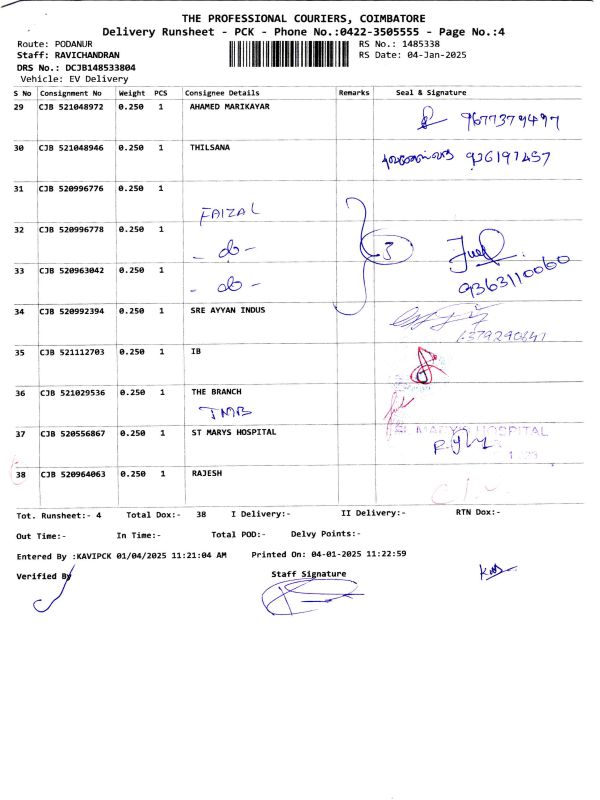 THE PROFESSIONAL COURIERS, COIMBATORE
Delivery Runsheet - PCK - Phone No.:0422-3505555 - Page No.:4
Route: PODANUR RS No.: 1485338
Staff: RAVICHANDRAN RS Date: 04-Jan-2025
DRS No.: DCJB148533804
Vehicle: EV Delivery
S No Consignment No Weight PCS Consignee Details Remarks Seal & Signature
29 CJB 521048972 0.250 1 AHAMED MARIKAYAR
9677379497
30 CJB 521048946 0.250 1 THILSANA
936197457
31 CJB 520996776 0.250 1
FAIZAL
32 CJB 520996778 0.250 1
- do - 3
33 CJB 520963042 0.250 1
- do - 9363110060
34 CJB 520992394 0.250 1 SRE AYYAN INDUS
35 CJB 521112703 0.250 1 IB
36 CJB 521029536 0.250 1 THE BRANCH
TMB
37 CJB 520556867 0.250 1 ST MARYS HOSPITAL
ST MARY'S HOSPITAL
38 CJB 520964063 0.250 1 RAJESH
Tot. Runsheet:- 4 Total Dox:- 38 I Delivery:- II Delivery:- RTN Dox:-
Out Time:- In Time:- Total POD:- Delvy Points:-
Entered By :KAVIPCK 01/04/2025 11:21:04 AM Printed On: 04-01-2025 11:22:59
Verified By Staff Signature